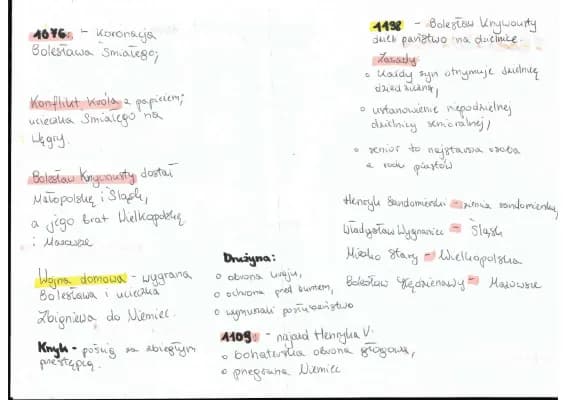 1076 - Koronacja
Bolesława Śmiałego;
Konflikt Króla z papieżem;
ucieczka Śmiałego na
Węgry.
Bolesław Krzywousty dostał
Małopolskę i Śląsk,
a jego brat Wielkopolskę
i Mazowsze
Wojna domowa - wygrana
Bolesława i ucieczka
Zbigniewa do Niemiec.
Knyk - pościg za zbiegłym
przestępcą.
Drużyna:
o obrona kraju,
o ochrona przed buntem,
o wymuszali posłuszeństwo
1109 - najazd Henryka V.
o bohaterska obrona głogowa,
o przegrana Niemiec
1138 - Bolesław Krzywousty
dzieli państwo na dzielnice.
Zasady
o każdy syn otrzymuje dzielnicę
dziedziczną,
o ustanowienie niepodzielnej
dzielnicy senioralnej,
o senior to najstarsza osoba
z rodu piastów
Henryk Sandomierski - ziemia sandomierska
Władysław Wygnaniec - Śląsk
Mieszko Stary - Wielkopolska
Bolesław Kędzierzawy - Mazowsze